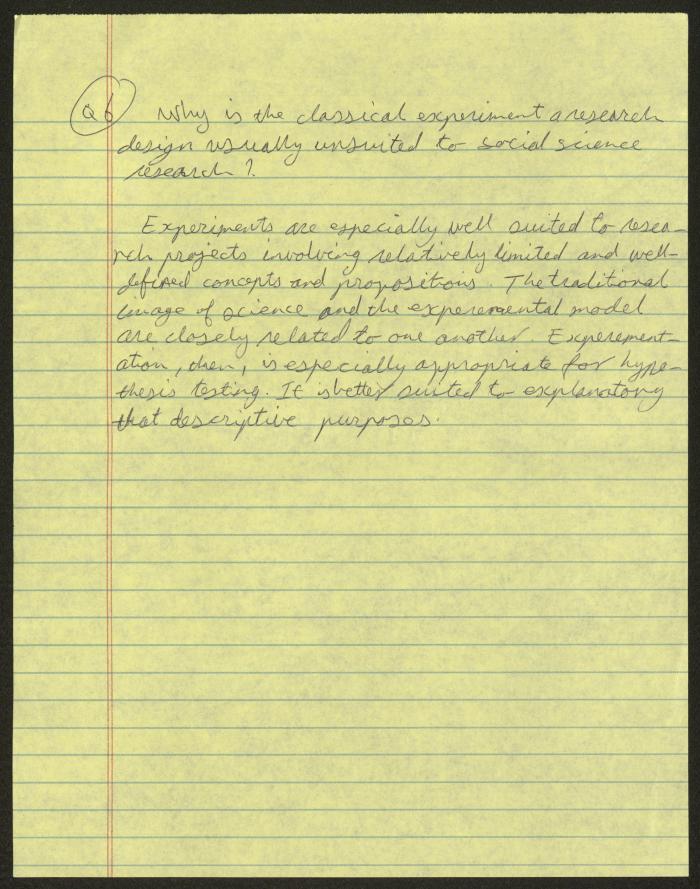 Q6 Why is the classical experiment a research
design usually unsuited to social science
research?
Experiments are especially well suited to resea-
rch projects involving relatively limited and well-
defined concepts and propositions. The traditional
image of science and the experemental model
are closely related to one another. Experement-
ation, then, is especially appropriate for hypo-
thesis testing. It is better suited to explanatory
that descriptive purposes.